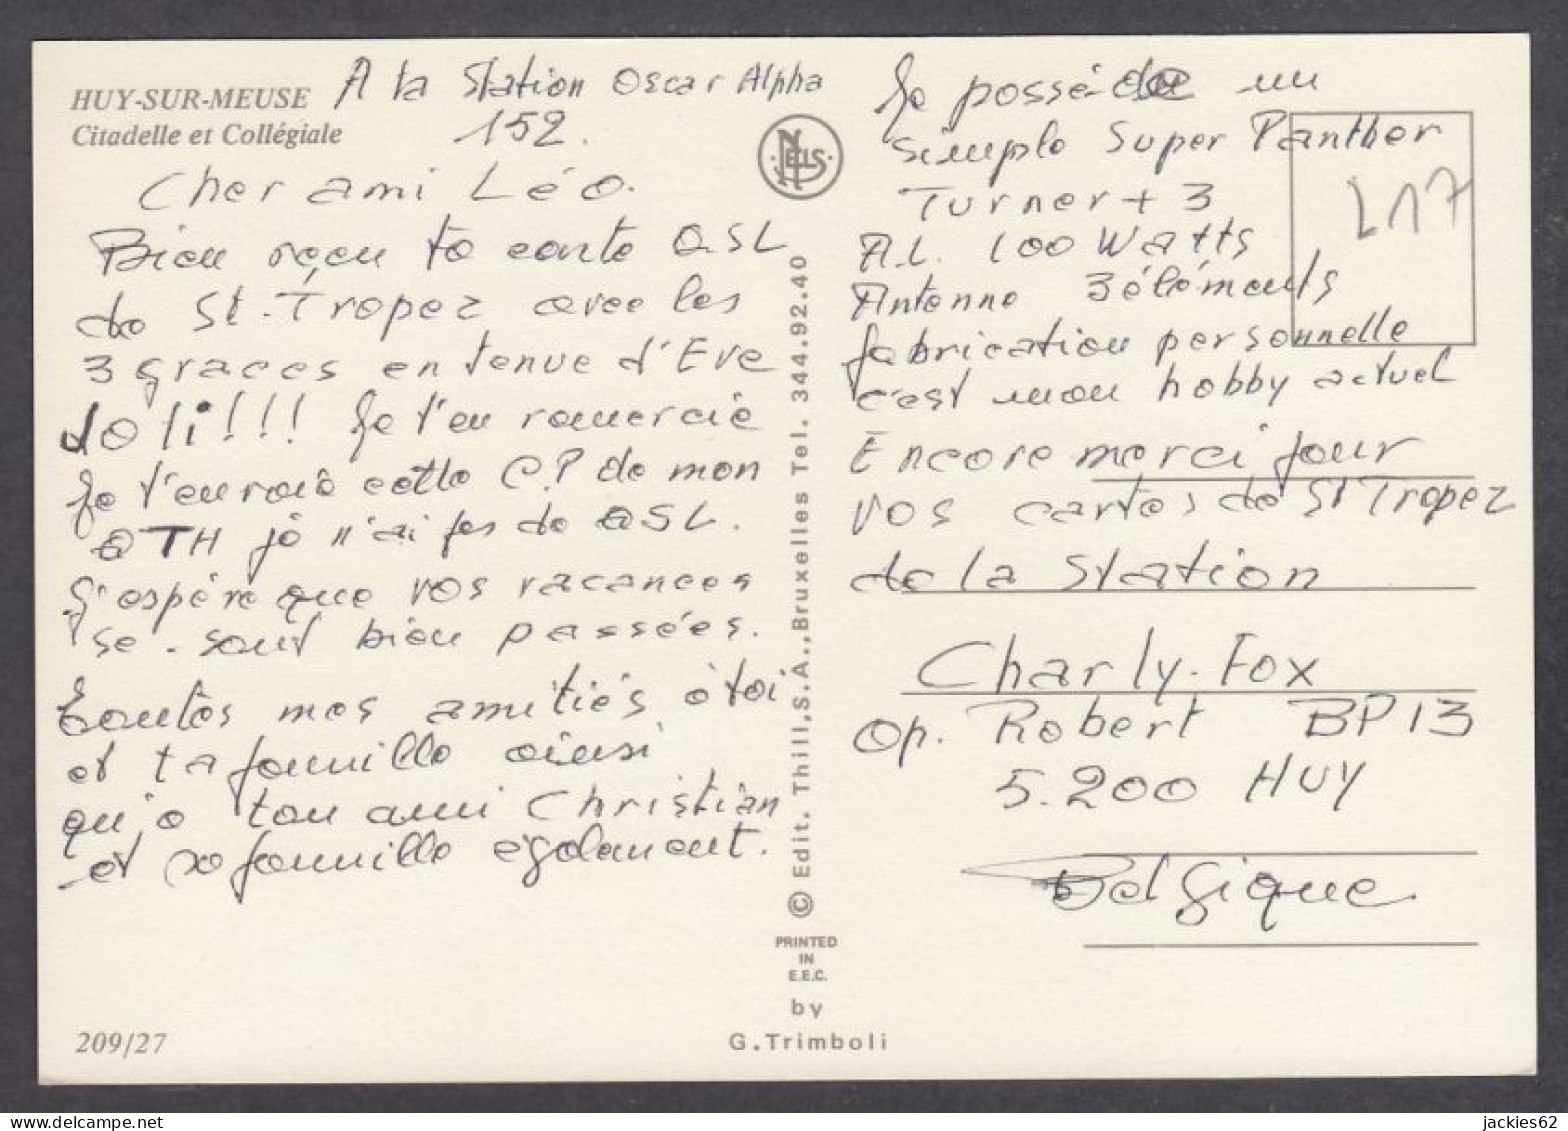 HUY-SUR-MEUSE
Citadelle et Collégiale
A la Station Oscar Alpha
152.
Cher ami Léo.
Bien reçu ta carte QSL
de St-Tropez avec les
3 graces en tenue d'Eve
Joli!!! Je t'en remercie
Je t'envoie cette C.P. de mon
QTH je n'ai pas de QSL.
J'espére que vos vacances
se sont bien passées.
Toutes mes amitiés à toi
et ta famille ainsi
qu'a ton ami Christian
et sa famille également.
209/27
NELS
© Edit. Thill, S.A., Bruxelles Tel. 344.92.40
PRINTED
IN
E.E.C.
by
G. Trimboli
Je possède un
simple Super Panther
Turner + 3
A.L. 100 Watts
Antenne 3 éléments
fabrication personnelle
c'est mon hobby actuel
Encore merci pour
vos cartes de St Tropez
de la Station
Charly-Fox
Op. Robert BP 13
5.200 HUY
Belgique
L17
jackies62
delcampe.net